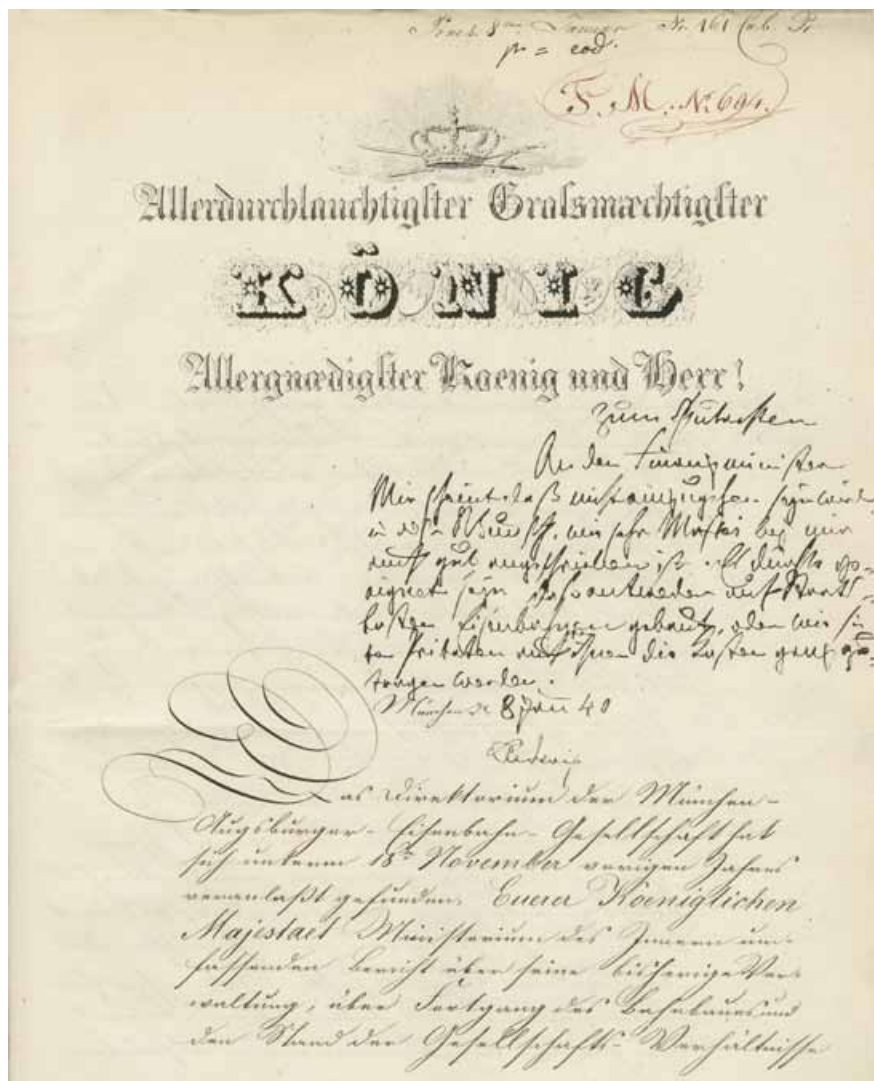 Nr. 161 Cab. Pr.
pr = eod.
F. M. Nr. 694.
Allerdurchlauchtigster Grossmæchtigster
KÖNIG
Allergnædigster Koenig und Herr!
Zum Gutachten
An den Finanzminister
Mir scheint, daß nicht einzugehen seyn würde
in diesen Wunsch, wie sehr Maffei bey mir
auch gut angeschrieben ist. Es dürfte ge-
eignet seyn, daß entweder auf Staats-
kosten Eisenbahnen gebaut, oder wie
Privaten die Kosten ganz ge-
tragen werden.
München den 8 Jan 40
Ludwig
Das Direktorium der München-
Augsburger-Eisenbahn-Gesellschaft hat
sich unterm 18ten November vorigen Jahres
veranlaßt gefunden, Euerer Koeniglichen
Majestaet Ministerium des Innern um-
fassenden Bericht über seine bisherige Ver-
waltung, über Fortgang des Bahnbaues und
den Stand der Gesellschafts-Verhältnisse